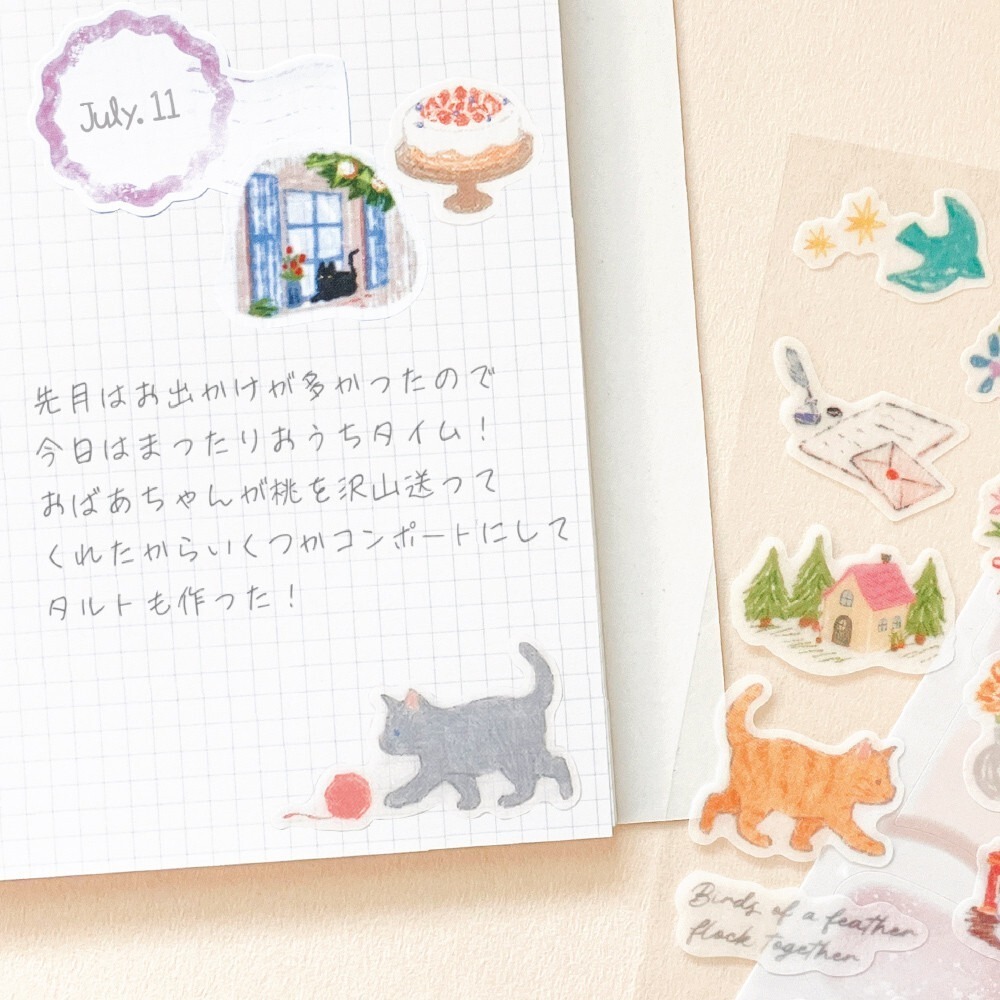 July. 11
先月はお出かけが多かったので
今日はまったりおうちタイム！
おばあちゃんが桃を沢山送って
くれたからいくつかコンポートにして
タルトも作った！
Birds of a feather
flock together